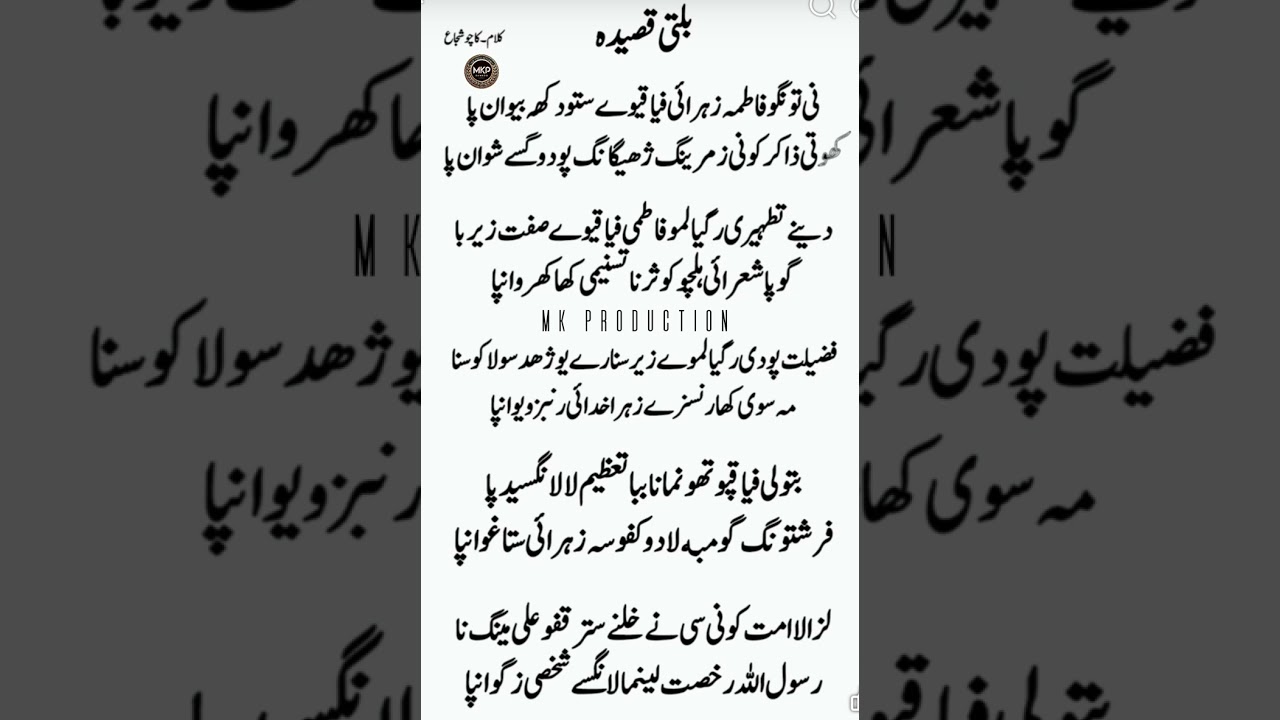 بلتی قصیدہ
کلام۔کاچو شجاع
MKP
نی تونگو فاطمہ زہرائی فیاقیوے ستود کھہ بیوان پا
کھوتی ذاکر کونی زمرینگ ژھیگانگ پود وگسے شوان پا
دینے تطہیری رگیالمو فاطمی فیاقیوے صفت زیربا
گوپا شعرائی ہلچو کوثر نا تسنیمی کھا کھروانپا
MK PRODUCTION
فضیلت پودی رگیالموے زیرسنارے یوژھد سولا کوسنا
مہ سوی کھارنسنرے زہرا خدائی رنبزویوانپا
بتولی فیاقپو تھونمانا ببا تعظیم لا لانگسید پا
فرشتونگ گومبہ لادوکفوسہ زہرائی ستاغوانپا
لزالا امت کونی سی نے خلنے سترقفو علی مینگ نا
رسول اللہ رخصت لینمالانگسے شخصی زگوانپا